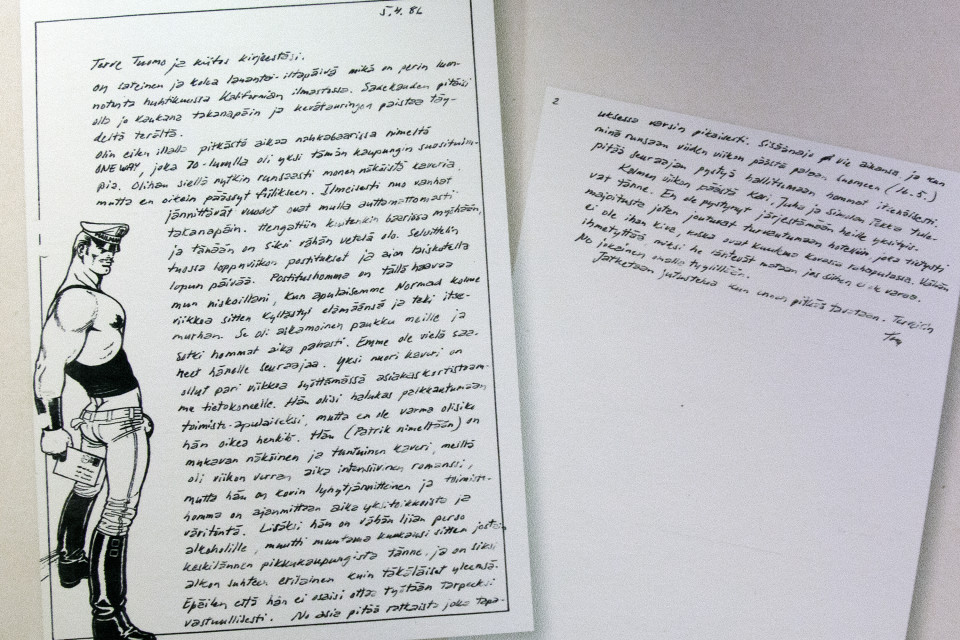 5.4.86
Terve Tuomo ja kiitos kirjeestäsi.
On sateinen ja kolea lauantai-iltapäivä mikä on perin luon-
notonta huhtikuussa Kalifornian ilmastossa. Sadekauden pitäisi
olla jo kaukana takanapäin ja kevätauringon paistaa täy-
deltä terältä.
Olin eilen illalla pitkästä aikaa nahkabaarissa nimeltä
ONE WAY, joka 70-luvulla oli yksi tämän kaupungin suosituim-
pia. Olihan siellä nytkin runsaasti monen näköistä kaveria
mutta en oikein päässyt fiilikseen. Ilmeisesti nuo vanhat
jännittävät vuodet ovat mulla auttamattomasti
takanapäin. Hengattiin kuitenkin baarissa myöhään,
ja tänään on siksi vähän vetelä olo. Selvittelin
tuossa loppuviikon postitukset ja aion laiskotella
lopun päivää. Postitushomma on tällä haavaa
mun niskoillani, kun apulaisemme Normad kolme
viikkoa sitten kyllästyi elämäänsä ja teki itse-
murhan. Se oli aikamoinen paukku meille ja
sotki hommat aika pahasti. Emme ole vielä saa-
neet hänelle seuraajaa. Yksi nuori kaveri on
ollut pari viikkoa syöttämässä asiakaskortistoam-
me tietokoneelle. Hän olisi halukas palkkautumaan
toimisto-apulaiseksi, mutta en ole varma olisiko
hän oikea henkilö. Hän (Patrik nimeltään) on
mukavan näköinen ja tuntuinen kaveri, meillä
oli viikon verran aika intensiivinen romanssi,
mutta hän on kovin lyhytjännitteinen ja toimisto-
homma on ajanmittaan aika yksitoikkoista ja
väritöntä. Lisäksi hän on vähän liian perso
alkoholille, muutti muutama kuukausi sitten jostain
keskilännen pikkukaupungista tänne, ja on siksi
alkon suhteen erilainen kuin täkäläiset yleensä.
Epäilen että hän ei osaisi ottaa työtään tarpeeksi
vastuullisesti. No asia pitää ratkaista joka tapa-
2
uksessa varsin pikaisesti. Sisäänajo vie aikansa ja kun
minä runsaan viiden viikon päästä palaan Suomeen (16.5.)
pitää seuraajan pystyä hallitsemaan hommat itsenäisesti.
Kolmen viikon päästä Kari, Juha ja Pekka tule-
vat tänne. En ole pystynyt järjestämään heille yksityis-
majoitusta joten joutuvat turvautumaan hotelliin joka tietysti
ei ole ihan kiva, koska ovat kuulema kovassa rahapulassa. Vähän
ihmetyttää miksi he lähtevät matkaan jos siihen ei ole varaa.
No jokainen omalla tyylillään.
Jatketaan jutustelua kun ennen pitkää tavataan. Terveisin
Tom